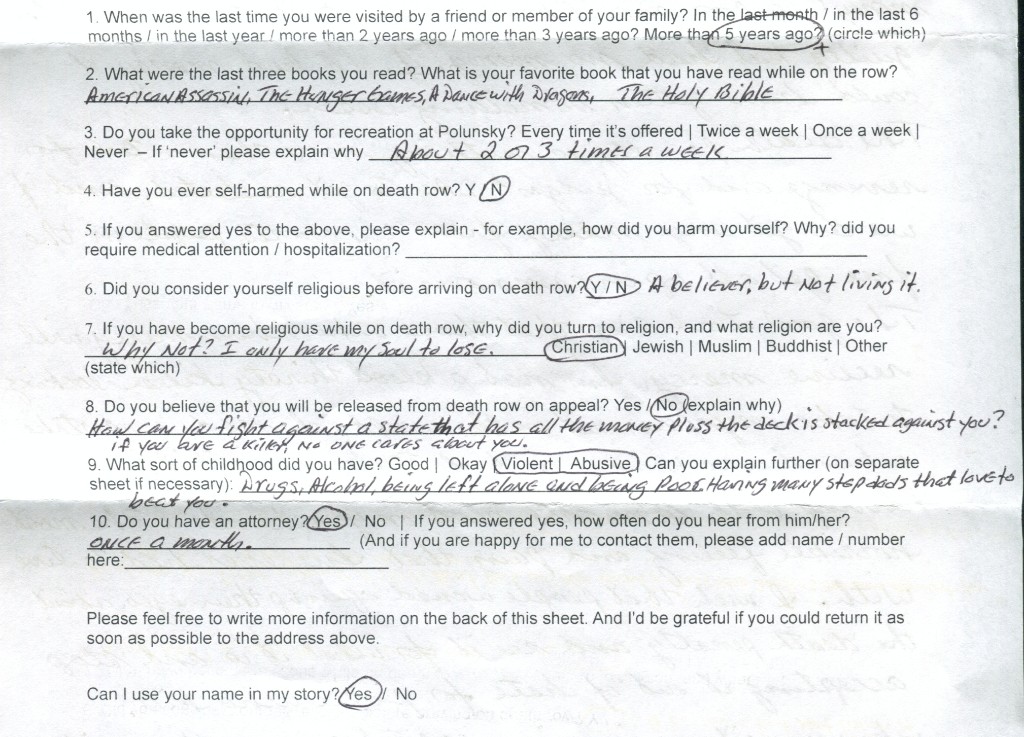 1. When was the last time you were visited by a friend or member of your family? In the last month / in the last 6
months / in the last year / more than 2 years ago / more than 3 years ago? More than 5 years ago? (circle which)
+
2. What were the last three books you read? What is your favorite book that you have read while on the row?
American Assassin, The Hunger Games, A Dance with Dragons, The Holy Bible
3. Do you take the opportunity for recreation at Polunsky? Every time it's offered | Twice a week | Once a week |
Never – If 'never' please explain why About 2 or 3 times a week
4. Have you ever self-harmed while on death row? Y / N
5. If you answered yes to the above, please explain - for example, how did you harm yourself? Why? did you
require medical attention / hospitalization?
6. Did you consider yourself religious before arriving on death row? Y / N A believer, but Not living it.
7. If you have become religious while on death row, why did you turn to religion, and what religion are you?
Why Not? I only have my Soul to lose. Christian | Jewish | Muslim | Buddhist | Other
(state which)
8. Do you believe that you will be released from death row on appeal? Yes / No (explain why)
How can you fight against a state that has all the money pluss the deck is stacked against you?
if you are a killer, No one cares about you.
9. What sort of childhood did you have? Good | Okay | Violent | Abusive | Can you explain further (on separate
sheet if necessary): Drugs, Alcohol, being left alone and being Poor. Having many step dads that love to
beat you.
10. Do you have an attorney? Yes / No | If you answered yes, how often do you hear from him/her?
once a month. (And if you are happy for me to contact them, please add name / number
here:
Please feel free to write more information on the back of this sheet. And I'd be grateful if you could return it as
soon as possible to the address above.
Can I use your name in my story? Yes / No